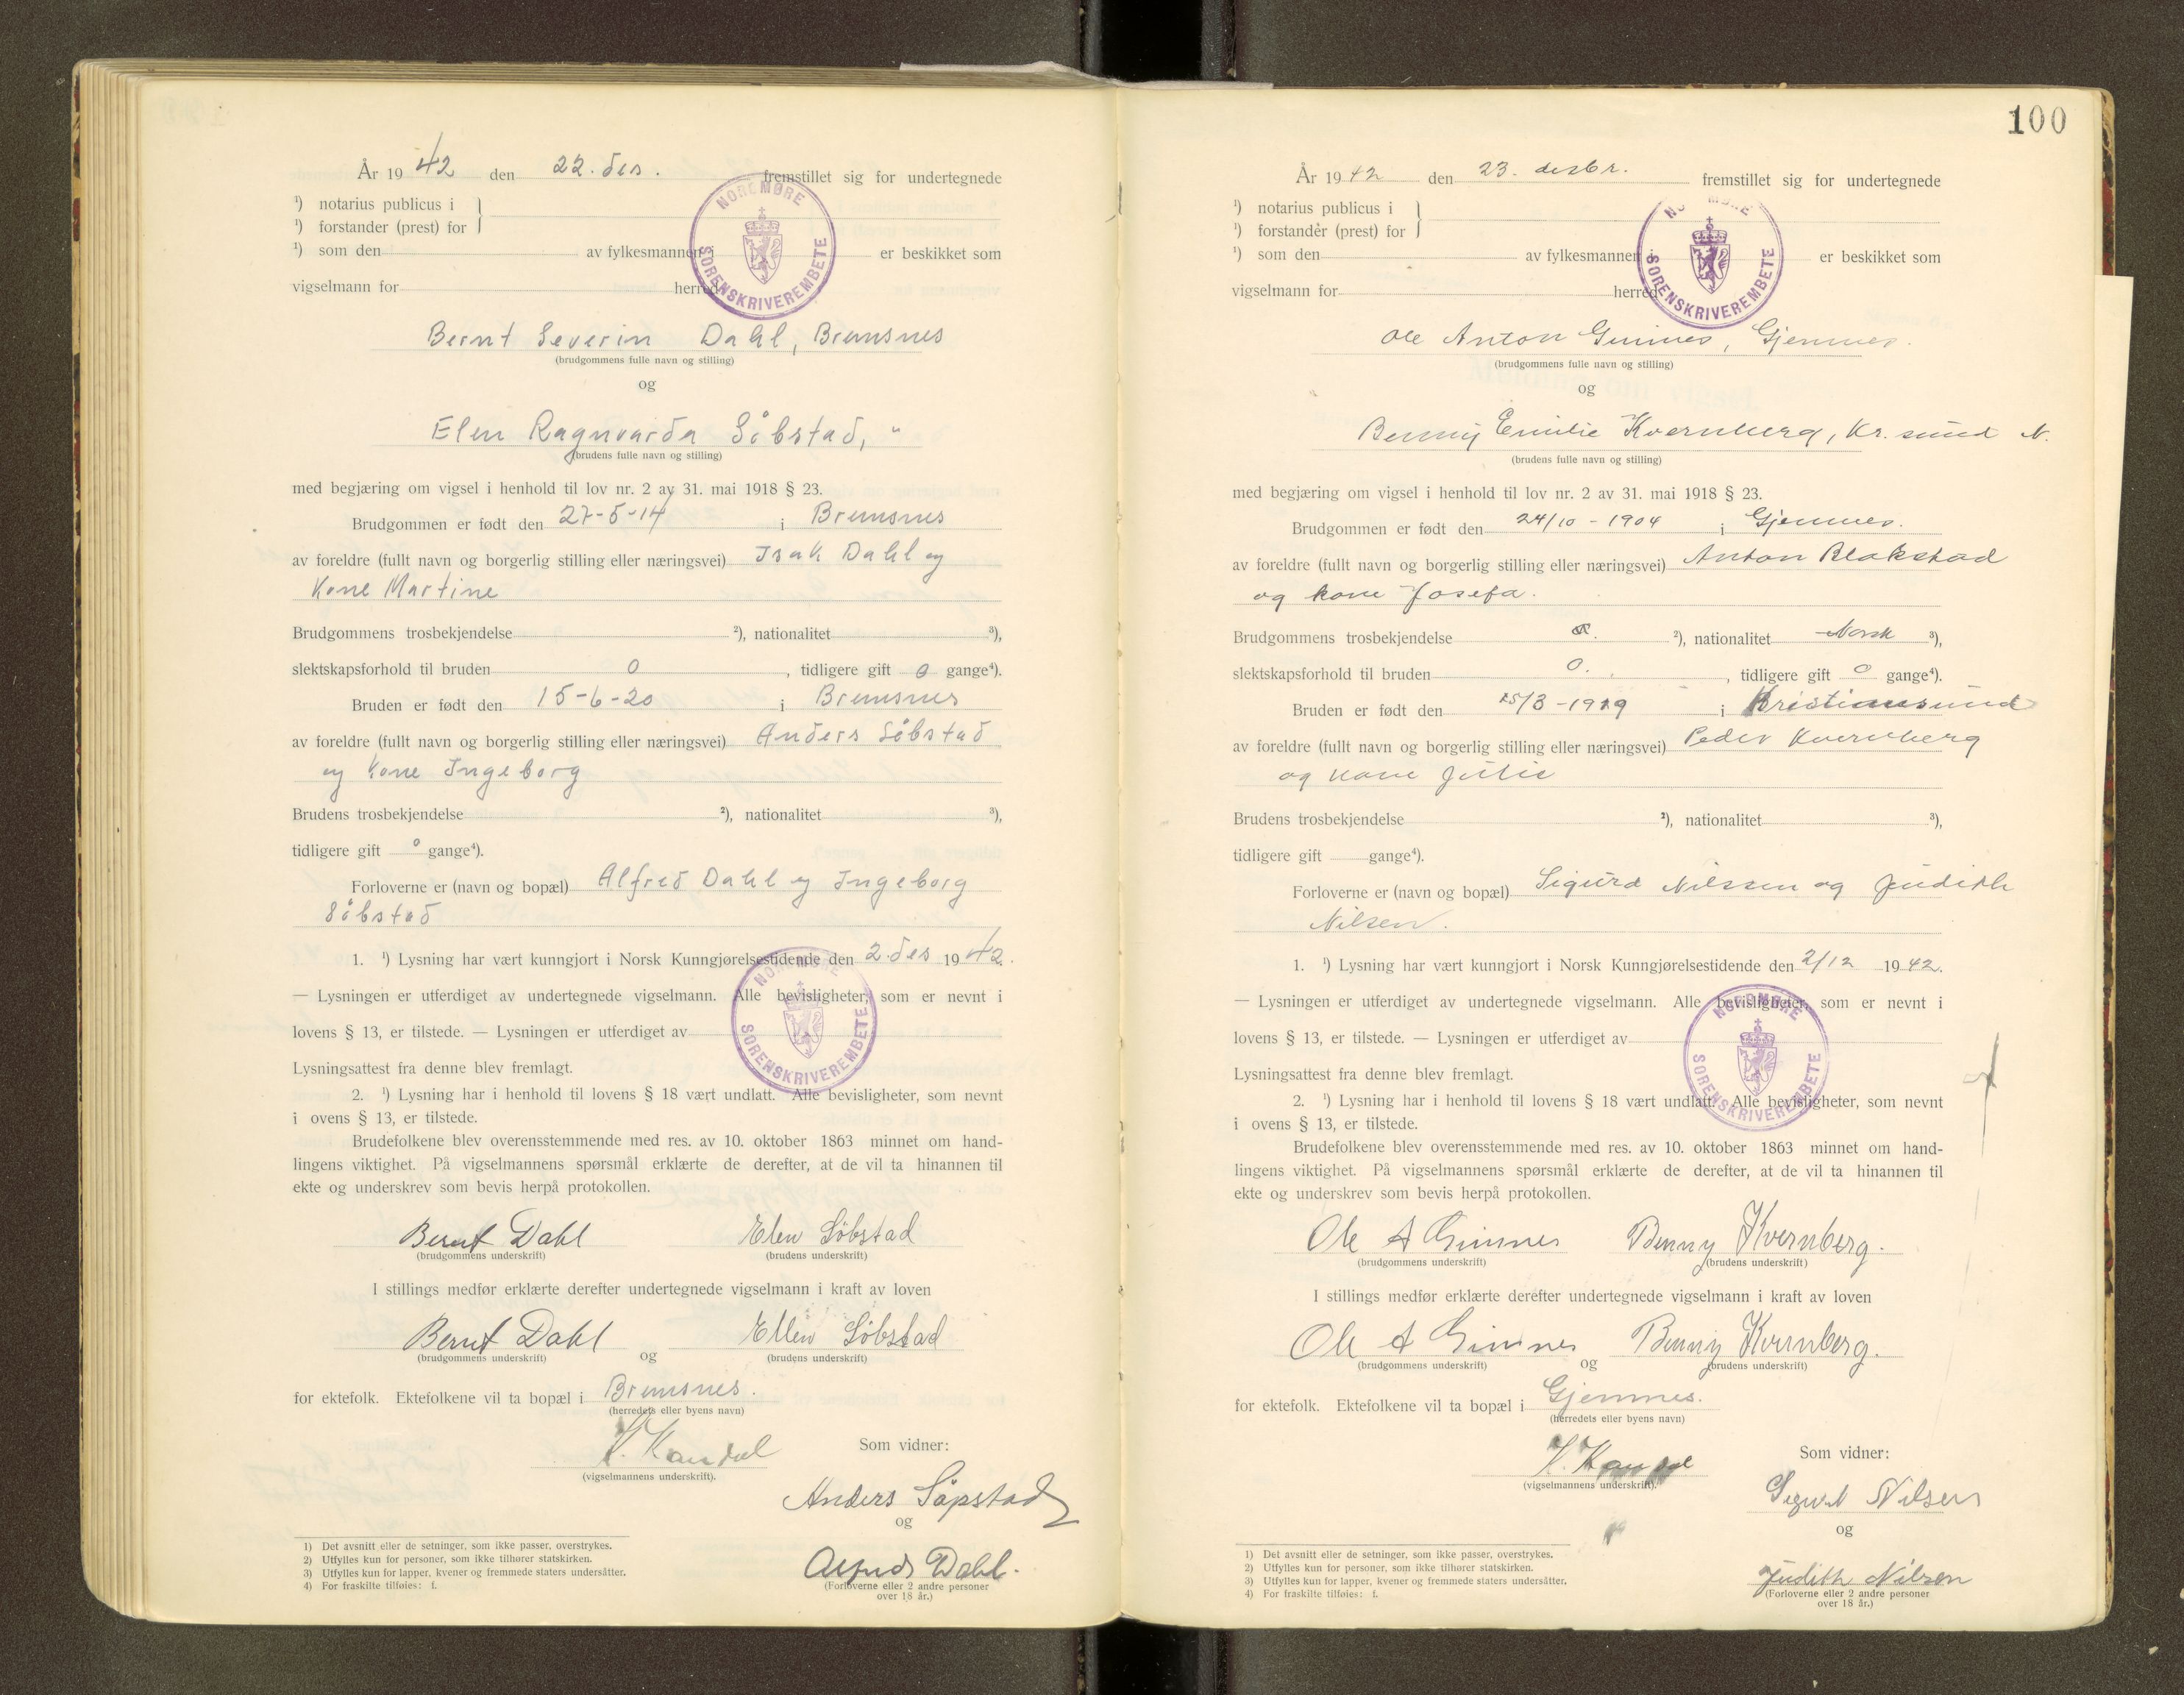 År 19 42 den 22. des. fremstillet sig for undertegnede
¹) notarius publicus i
¹) forstander (prest) for
¹) som den av fylkesmannen i er beskikket som
vigselmann for herred
NORDMØRE SORENSKRIVEREMBETE
Bernt Severin Dahl, Bremsnes
(brudgommens fulle navn og stilling)
og
Elen Ragnvarda Såbstad, "
(brudens fulle navn og stilling)
med begjæring om vigsel i henhold til lov nr. 2 av 31. mai 1918 § 23.
Brudgommen er født den 27-5-14 i Bremsnes
av foreldre (fullt navn og borgerlig stilling eller næringsvei) Isak Dahl og
Kone Martine
Brudgommens trosbekjendelse ²), nationalitet ³),
slektskapsforhold til bruden 0, tidligere gift 0 gange⁴).
Bruden er født den 15-6-20 i Bremsnes
av foreldre (fullt navn og borgerlig stilling eller næringsvei) Anders Såbstad
og Kone Ingeborg
Brudens trosbekjendelse ²), nationalitet ³),
tidligere gift 0 gange⁴).
Forloverne er (navn og bopæl) Alfred Dahl og Ingeborg
Såbstad
1. ¹) Lysning har vært kunngjort i Norsk Kunngjørelsestidende den 2. des 19 42.
— Lysningen er utferdiget av undertegnede vigselmann. Alle bevisligheter, som er nevnt i
lovens § 13, er tilstede. — Lysningen er utferdiget av
NORDMØRE SORENSKRIVEREMBETE
Lysningsattest fra denne blev fremlagt.
2. ¹) Lysning har i henhold til lovens § 18 vært undlatt. Alle bevisligheter, som nevnt
i ovens § 13, er tilstede.
Brudefolkene blev overensstemmende med res. av 10. oktober 1863 minnet om hand-
lingens viktighet. På vigselmannens spørsmål erklærte de derefter, at de vil ta hinannen til
ekte og underskrev som bevis herpå protokollen.
Bernt Dahl Elen Såbstad
(brudgommens underskrift) (brudens underskrift)
I stillings medfør erklærte derefter undertegnede vigselmann i kraft av loven
Bernt Dahl og Ellen Såbstad
(brudgommens underskrift) (brudens underskrift)
for ektefolk. Ektefolkene vil ta bopæl i Bremsnes.
(herredets eller byens navn)
K. Kandal
(vigselmannens underskrift).
Som vidner:
Anders Såpstad
og
Alfred Dahl.
(Forloverne eller 2 andre personer
over 18 år.)
1) Det avsnitt eller de setninger, som ikke passer, overstrykes.
2) Utfylles kun for personer, som ikke tilhører statskirken.
3) Utfylles kun for lapper, kvener og fremmede staters undersåtter.
4) For fraskilte tilføies: f.
100
År 19 42 den 23. desbr. fremstillet sig for undertegnede
¹) notarius publicus i
¹) forstander (prest) for
¹) som den av fylkesmannen i er beskikket som
vigselmann for herred
NORDMØRE SORENSKRIVEREMBETE
Ole Anton Gimnes, Gjemnes.
(brudgommens fulle navn og stilling)
og
Benny Emilie Kvernberg, Kr.sund N.
(brudens fulle navn og stilling)
med begjæring om vigsel i henhold til lov nr. 2 av 31. mai 1918 § 23.
Brudgommen er født den 24/10 - 1904 i Gjemnes.
av foreldre (fullt navn og borgerlig stilling eller næringsvei) Anton Blakstad
og kone Josefa.
Brudgommens trosbekjendelse ²), nationalitet Norsk ³),
slektskapsforhold til bruden 0., tidligere gift 0 gange⁴).
Bruden er født den 15/3 - 1919 i Kristiansund
av foreldre (fullt navn og borgerlig stilling eller næringsvei) Peder Kvernberg
og kone Julie
Brudens trosbekjendelse ²), nationalitet ³),
tidligere gift gange⁴).
Forloverne er (navn og bopæl) Sigurd Nilssen og Judith
Nilsen.
1. ¹) Lysning har vært kunngjort i Norsk Kunngjørelsestidende den 2/12 19 42.
— Lysningen er utferdiget av undertegnede vigselmann. Alle bevisligheter, som er nevnt i
lovens § 13, er tilstede. — Lysningen er utferdiget av
NORDMØRE SORENSKRIVEREMBETE
Lysningsattest fra denne blev fremlagt.
2. ¹) Lysning har i henhold til lovens § 18 vært undlatt. Alle bevisligheter, som nevnt
i ovens § 13, er tilstede.
Brudefolkene blev overensstemmende med res. av 10. oktober 1863 minnet om hand-
lingens viktighet. På vigselmannens spørsmål erklærte de derefter, at de vil ta hinannen til
ekte og underskrev som bevis herpå protokollen.
Ole A Gimnes Benny Kvernberg.
(brudgommens underskrift) (brudens underskrift)
I stillings medfør erklærte derefter undertegnede vigselmann i kraft av loven
Ole A Gimnes og Benny Kvernberg.
(brudgommens underskrift) (brudens underskrift)
for ektefolk. Ektefolkene vil ta bopæl i Gjemnes.
(herredets eller byens navn)
K. Kandal
(vigselmannens underskrift).
Som vidner:
Sigurd Nilsen
og
Judith Nilsen
(Forloverne eller 2 andre personer
over 18 år.)
1) Det avsnitt eller de setninger, som ikke passer, overstrykes.
2) Utfylles kun for personer, som ikke tilhører statskirken.
3) Utfylles kun for lapper, kvener og fremmede staters undersåtter.
4) For fraskilte tilføies: f.